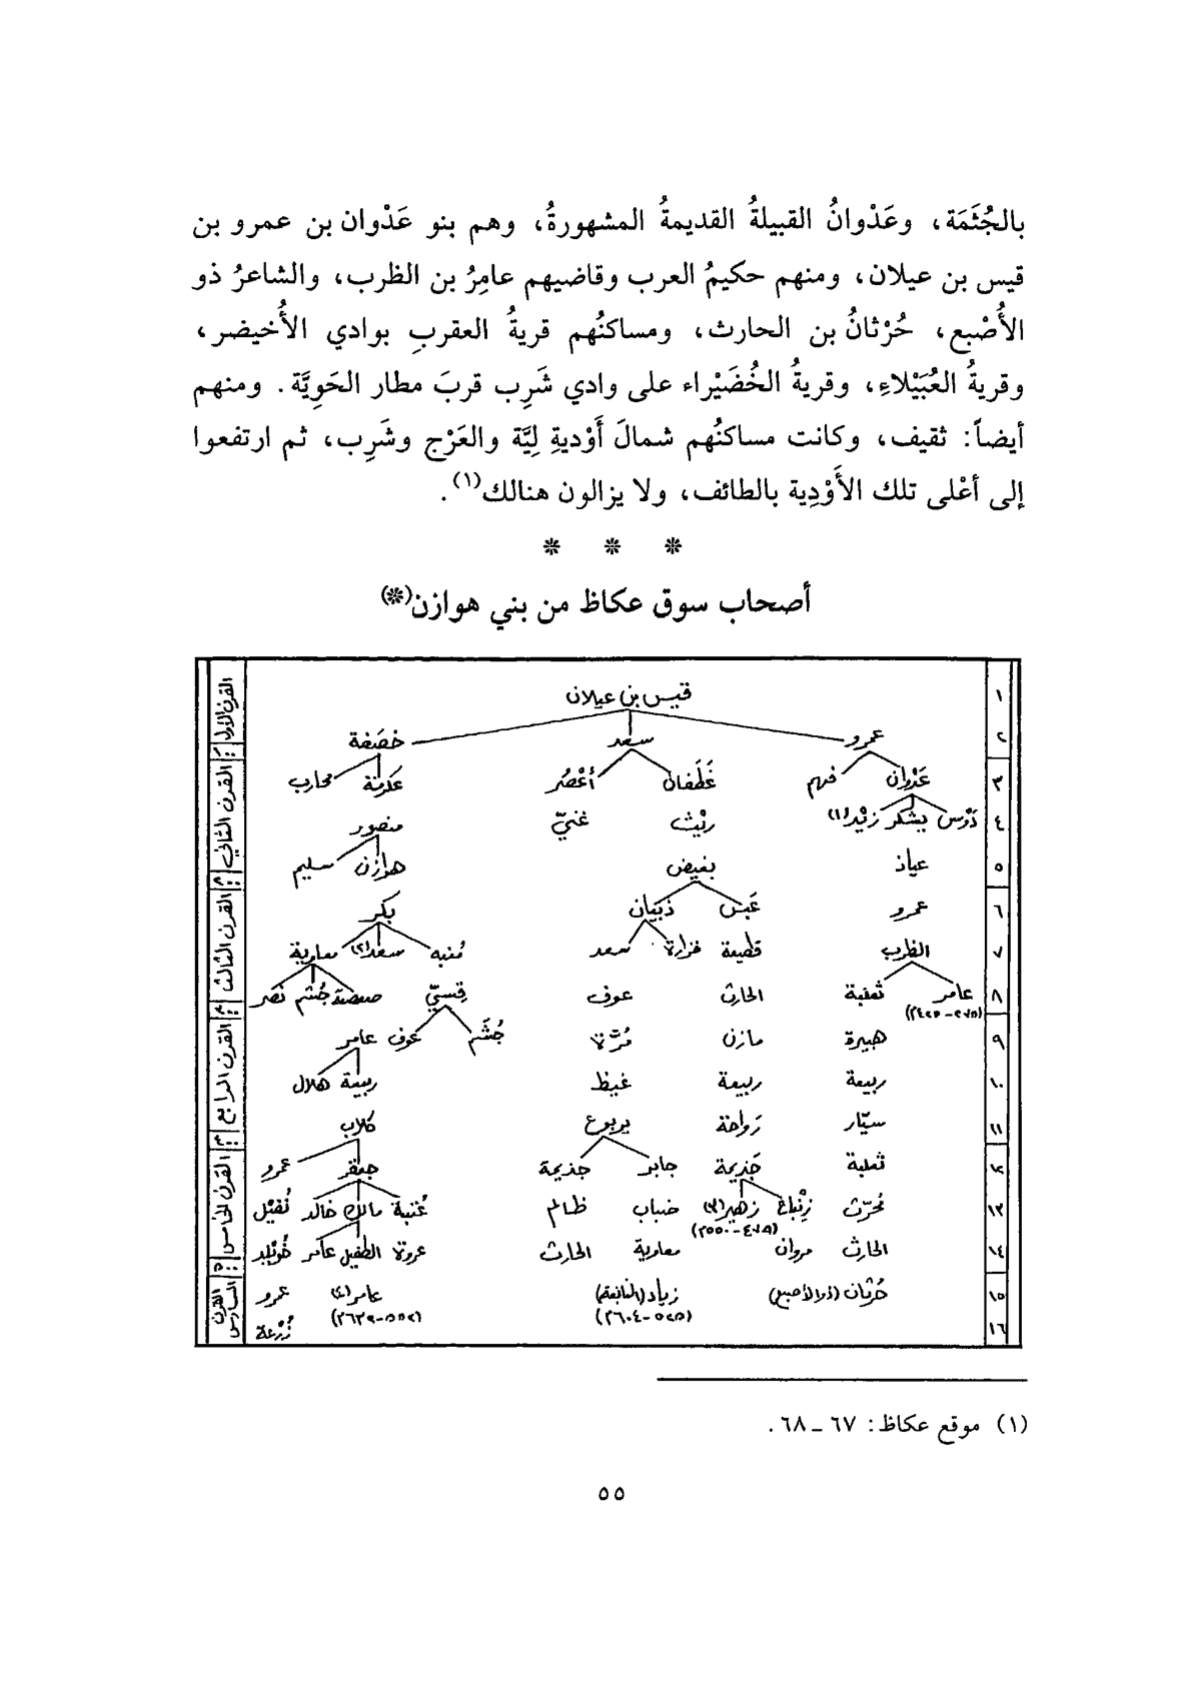 بالجُثَمَة، وعَدْوانُ القبيلةُ القديمةُ المشهورةُ، وهم بنو عَدْوان بن عمرو بن
قيس بن عيلان، ومنهم حكيمُ العرب وقاضيهم عامِرُ بن الظرب، والشاعرُ ذو
الأُصْبع، حُرْثانُ بن الحارث، ومساكنُهم قريةُ العقربِ بوادي الأُخيضر،
وقريةُ العُبَيْلاءِ، وقريةُ الخُضَيْراء على وادي شَرِب قربَ مطار الحَوِيَّة. ومنهم
أيضاً: ثقيف، وكانت مساكنُهم شمالَ أَوْديةِ لِيَّة والعَرْج وشَرِب، ثم ارتفعوا
إلى أعْلى تلك الأَوْدِية بالطائف، ولا يزالون هنالك(١).
* * *
أصحاب سوق عكاظ من بني هوازن(*)
١ قيس بن عيلان القرن الأول
٢ عمرو سعد خصَفة
٣ عَدْوان فهم غَطَفان أعْصُر عكرمة محارب القرن الثاني
٤ دَوْس يشكر زيْد(١) ريْث غنيّ منصور
٥ عياذ بغيض هوازن سليم
٦ عمرو عَبْس ذبيان بكر القرن الثالث
٧ الظرب قطيعة فزارة سعد مُنبه سعد(٢) معاوية
٨ عامر ثعلبة الحارث عوف قسيّ صعصعة جُشم نصر
٩ هبيرة مازن مُرّة جُشَم عوف عامر القرن الرابع
١٠ ربيعة ربيعة غيظ ربيعة هلال
١١ سيّار رَواحة يربوع كلاب
١٢ ثعلبة جَذيمة جابر جذيمة جعفر عمرو القرن الخامس
١٣ مُحرّث زِنْباع زهير(٣) ضباب ظالم عُتبة مالك خالد نُفَيْل
١٤ الحارث مروان معاوية الحارث عروة الطفيل عامر خُوَيْلد
١٥ حُرْثان (ذو الأصبع) زياد (النابغة) عامر(٤) عمرو القرن السادس
١٦ زُرْعة
(١) موقع عكاظ: ٦٧ ـ ٦٨.
٥٥